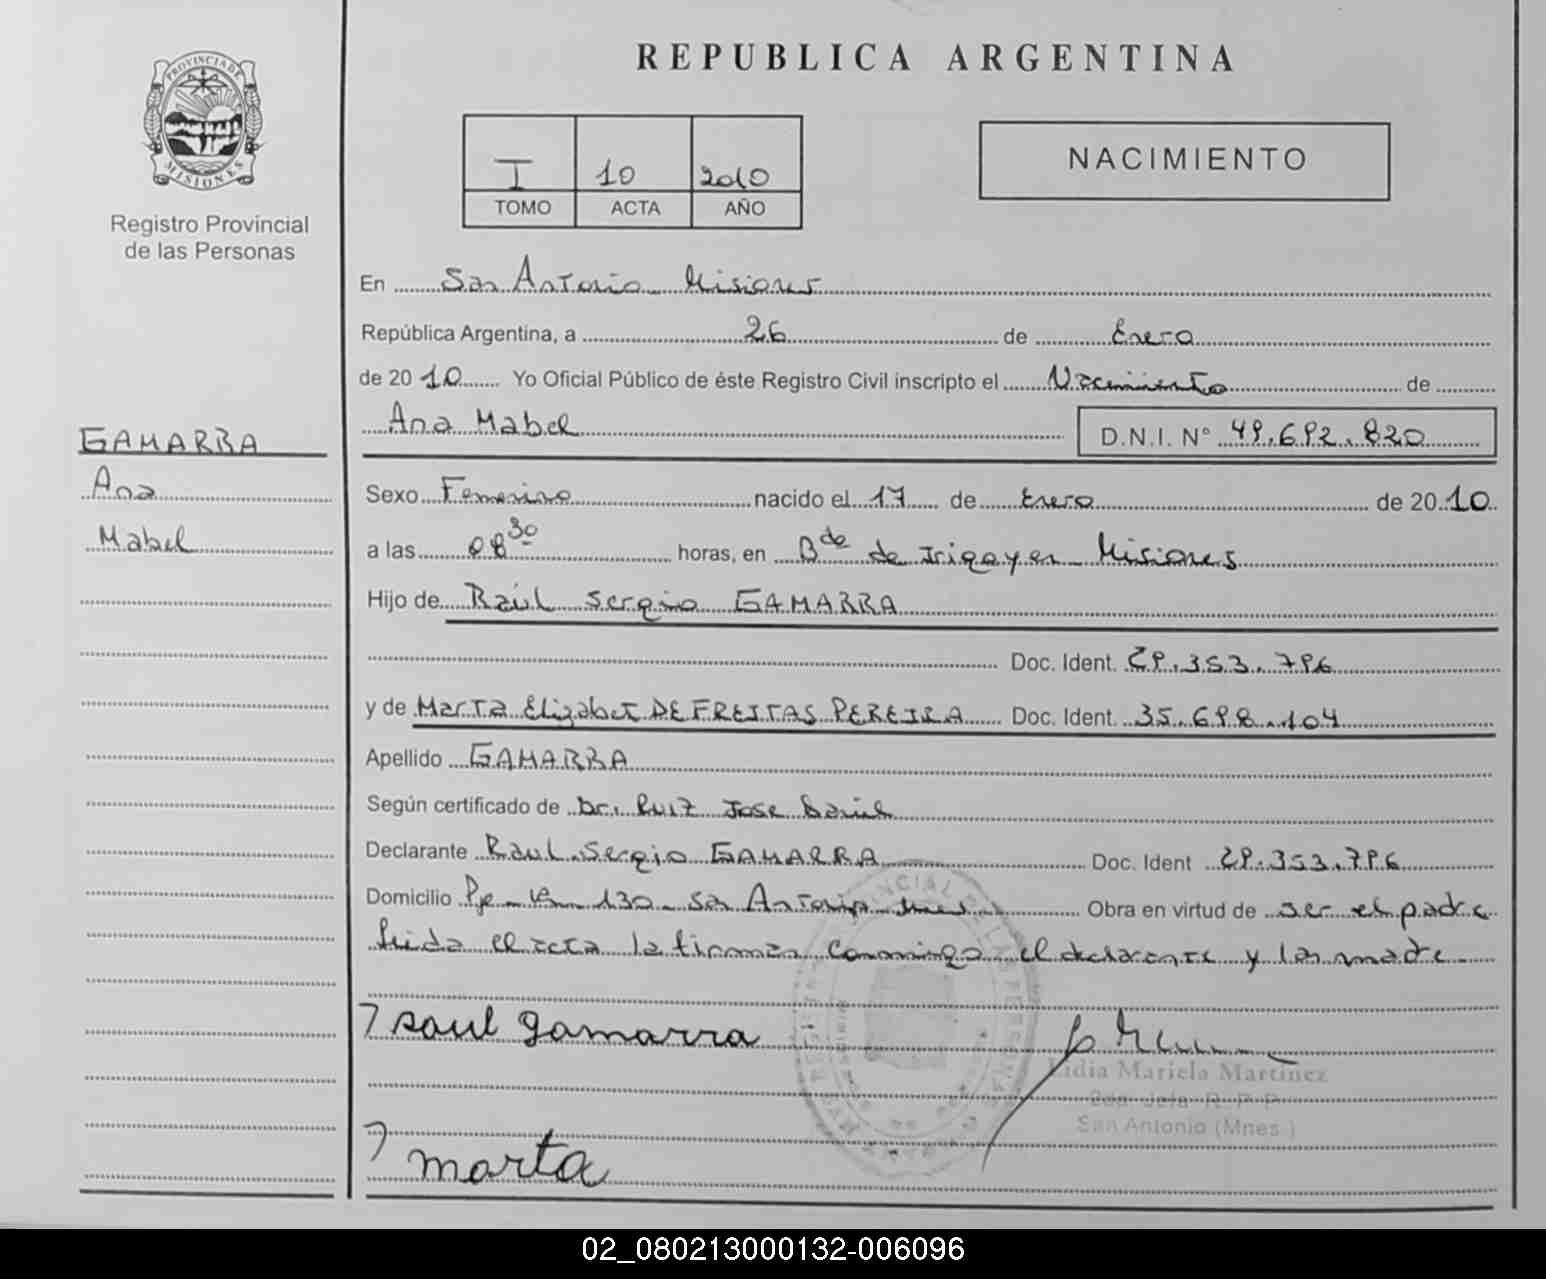 REPUBLICA ARGENTINA
PROVINCIA DE MISIONES
Registro Provincial
de las Personas
I 10 2010
TOMO ACTA AÑO
NACIMIENTO
En San Antonio Misiones
República Argentina, a 26 de Enero
de 20 10 Yo Oficial Público de éste Registro Civil inscripto el Nacimiento de
Ana Mabel D.N.I. Nº 49.692.820
GAMARRA
Ana
Mabel
Sexo Femenino nacido el 17 de Enero de 20 10
a las 08 30 horas, en Bde de Irigoyen Misiones
Hijo de Raúl Sergio GAMARRA
Doc. Ident. 29.353.796
y de Marta Elizabet DE FREITAS PEREIRA Doc. Ident. 35.698.104
Apellido GAMARRA
Según certificado de Dr. Ruiz Jose Daniel
Declarante Raul Sergio GAMARRA Doc. Ident 29.353.796
Domicilio Pje 130 San Antonio Mnes Obra en virtud de ser el padre
Leida el acta la firman conmigo el declarante y la madre
raul gamarra
Lidia Mariela Martinez
Jefa R. P. P.
San Antonio (Mnes.)
marta
02_080213000132-006096